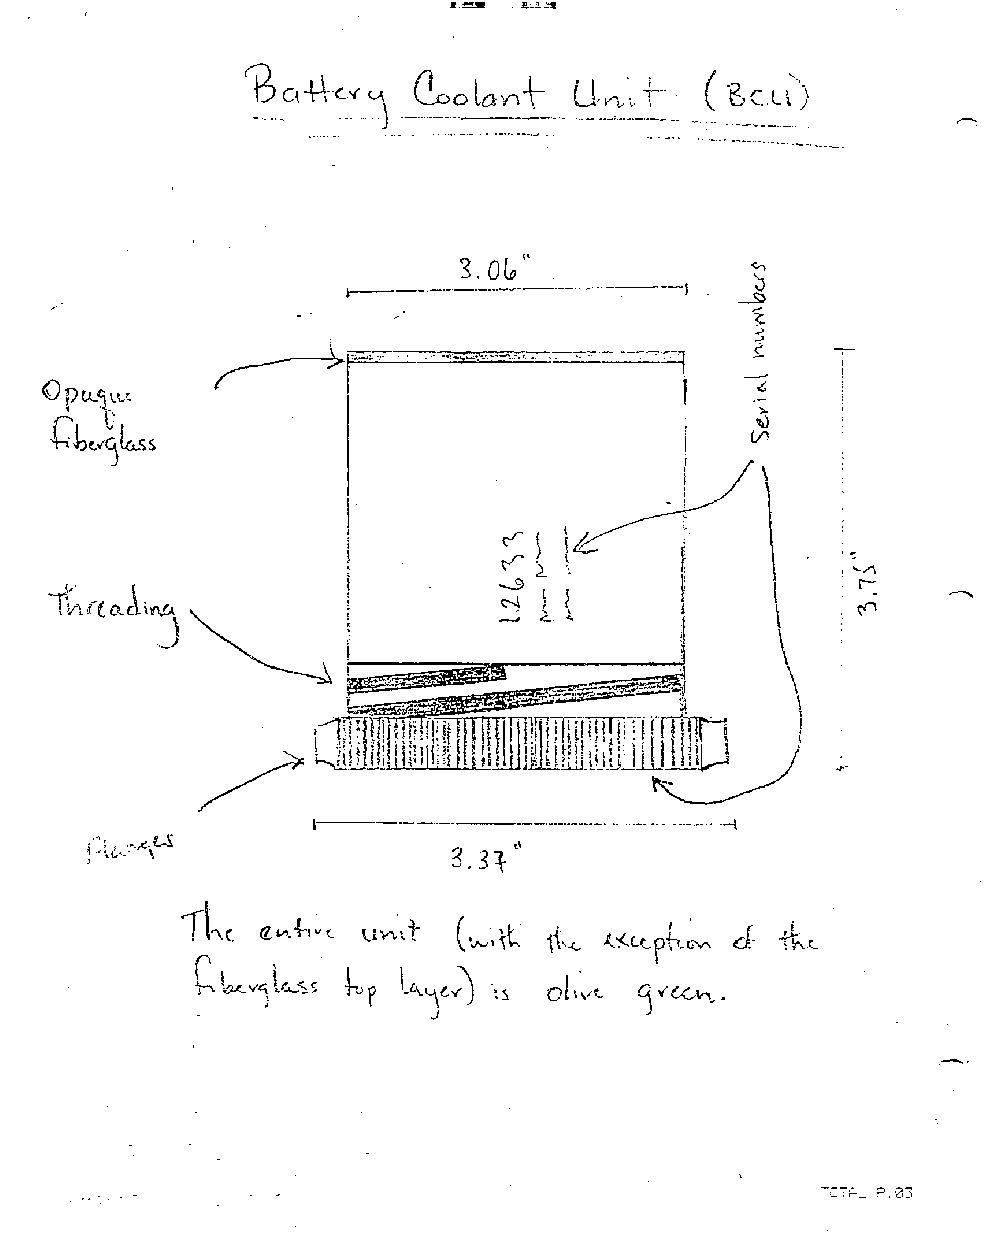 Battery Coolant Unit (BCU)
3.06"
Serial numbers
Opaque
fiberglass
12633
Threading
3.75"
Flanges
3.37"
The entire unit (with the exception of the
fiberglass top layer) is olive green.
TOTAL P.03